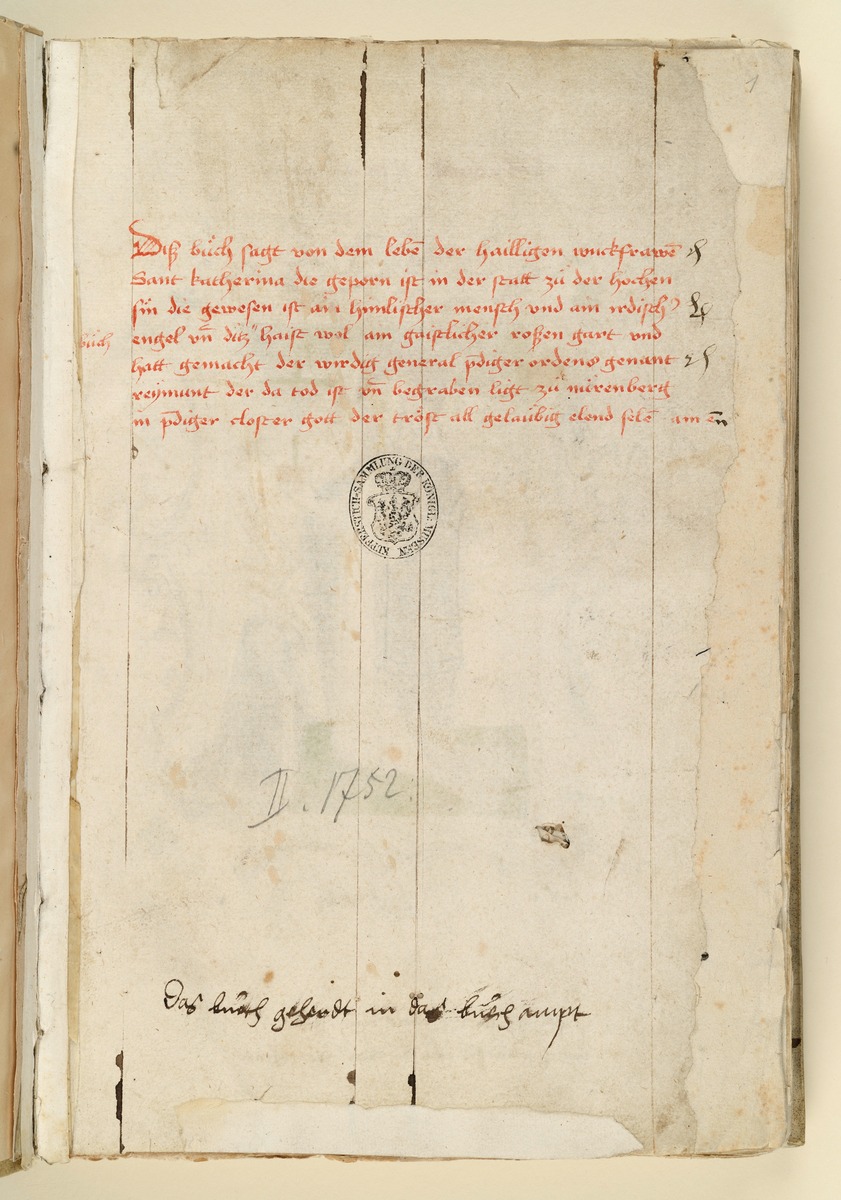 1
Diß bůch sagt von dem lebē der hailligen iunckfrawē
Sant katherina die geporn ist in der statt zů der hochen
sin die gewesen ist ain himlischer mensch vnd ain irdisch
engel vn̄ ditz haist wol ain gaistlicher roßen gart vnd
bůch
hatt gemacht der wirdig general p̄diger ordens genant
reymunt der da tod ist vn̄ begraben ligt zů nürenberg
in p̄diger closter gott der tröst all gelaubig elend selē am en̄
KUPFERSTICH-SAMMLUNG DER KÖNIGL. MUSEEN
II. 1752.
Das bůch geherdt in das bůch ampt